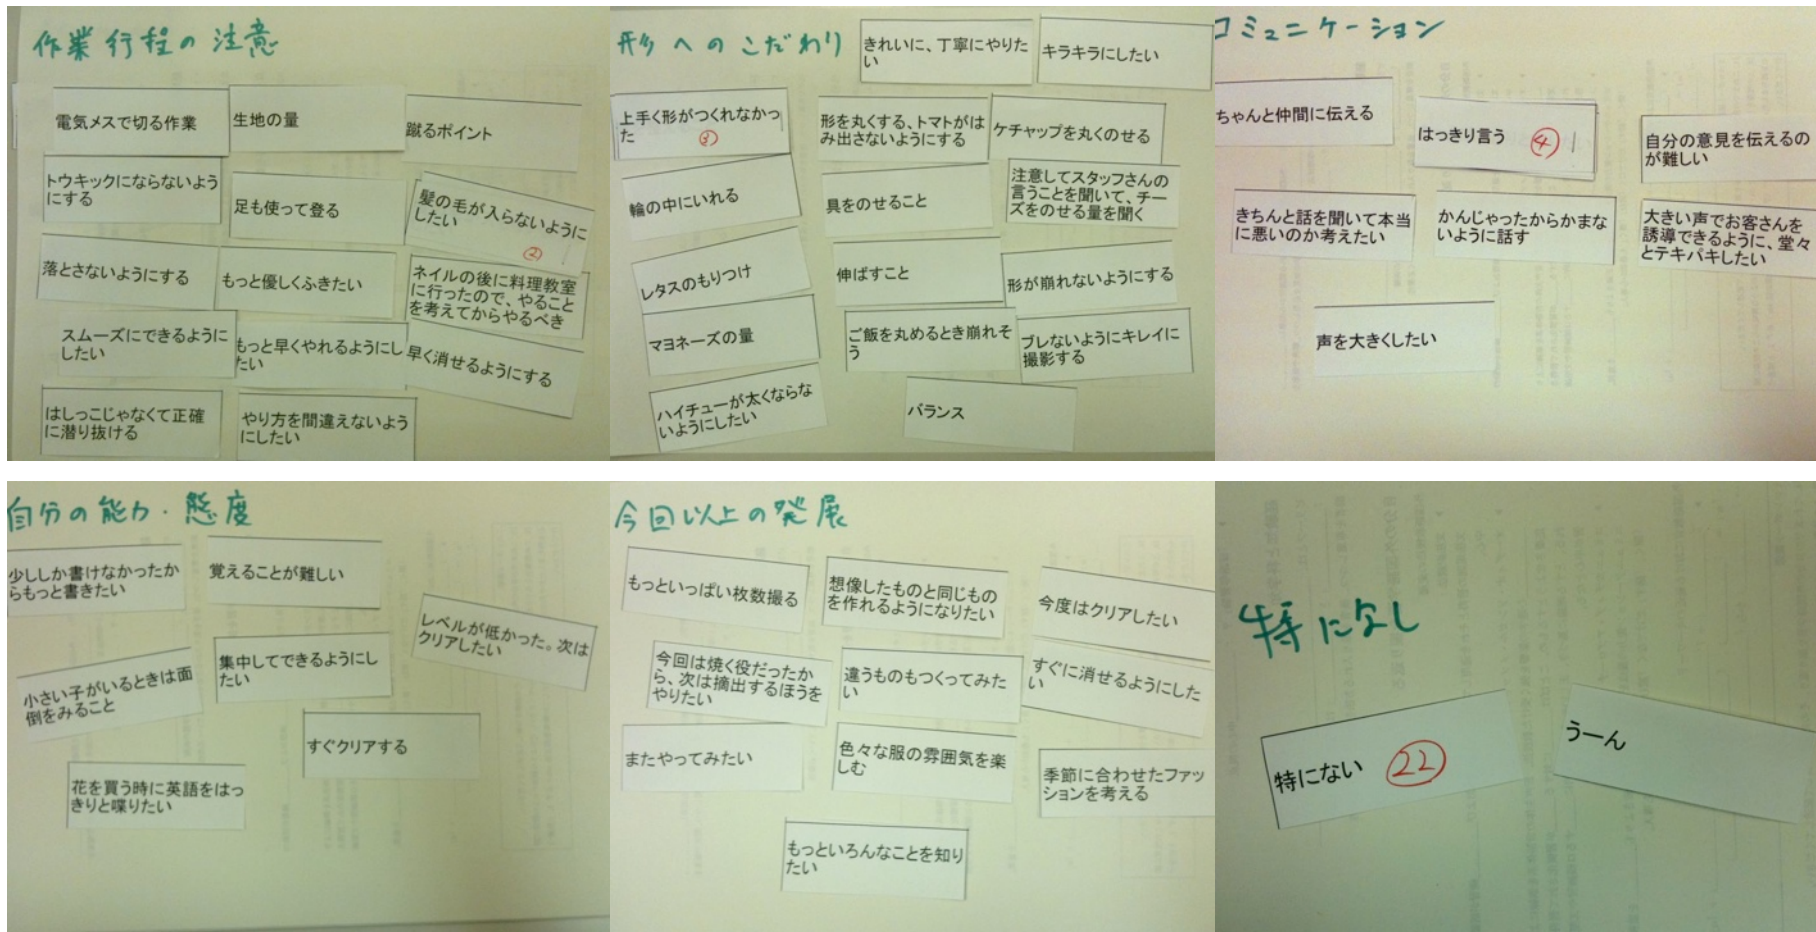 作業行程の注意
電気メスで切る作業
生地の量
蹴るポイント
トウキックにならないよう
にする
足も使って登る
髪の毛が入らないように
したい
②
落とさないようにする
もっと優しくふきたい
ネイルの後に料理教室
に行ったので、やること
を考えてからやるべき
スムーズにできるように
したい
もっと早くやれるようにし
たい
早く消せるようにする
はしっこじゃなくて正確
に潜り抜ける
やり方を間違えないよう
にしたい
形へのこだわり
きれいに、丁寧にやりた
い
キラキラにしたい
上手く形がつくれなかっ
た
形を丸くする、トマトがは
み出さないようにする
ケチャップを丸くのせる
輪の中にいれる
具をのせること
注意してスタッフさんの
言うことを聞いて、チー
ズをのせる量を聞く
レタスのもりつけ
伸ばすこと
形が崩れないようにする
マヨネーズの量
ご飯を丸めるとき崩れそ
う
ブレないようにキレイに
撮影する
ハイチューが太くならな
いようにしたい
バランス
コミュニケーション
ちゃんと仲間に伝える
はっきり言う ④
自分の意見を伝えるの
が難しい
きちんと話を聞いて本当
に悪いのか考えたい
かんじゃったからかまな
いように話す
大きい声でお客さんを
誘導できるように、堂々
とテキパキしたい
声を大きくしたい
自分の能力・態度
少ししか書けなかったか
らもっと書きたい
覚えることが難しい
レベルが低かった。次は
クリアしたい
小さい子がいるときは面
倒をみること
集中してできるようにし
たい
すぐクリアする
花を買う時に英語をはっ
きりと喋りたい
今回以上の発展
もっといっぱい枚数撮る
想像したものと同じもの
を作れるようになりたい
今度はクリアしたい
今回は焼く役だったか
ら、次は摘出するほうを
やりたい
違うものもつくってみた
い
すぐに消せるようにした
い
またやってみたい
色々な服の雰囲気を楽
しむ
季節に合わせたファッ
ションを考える
もっといろんなことを知り
たい
特になし
特にない ㉒
うーん